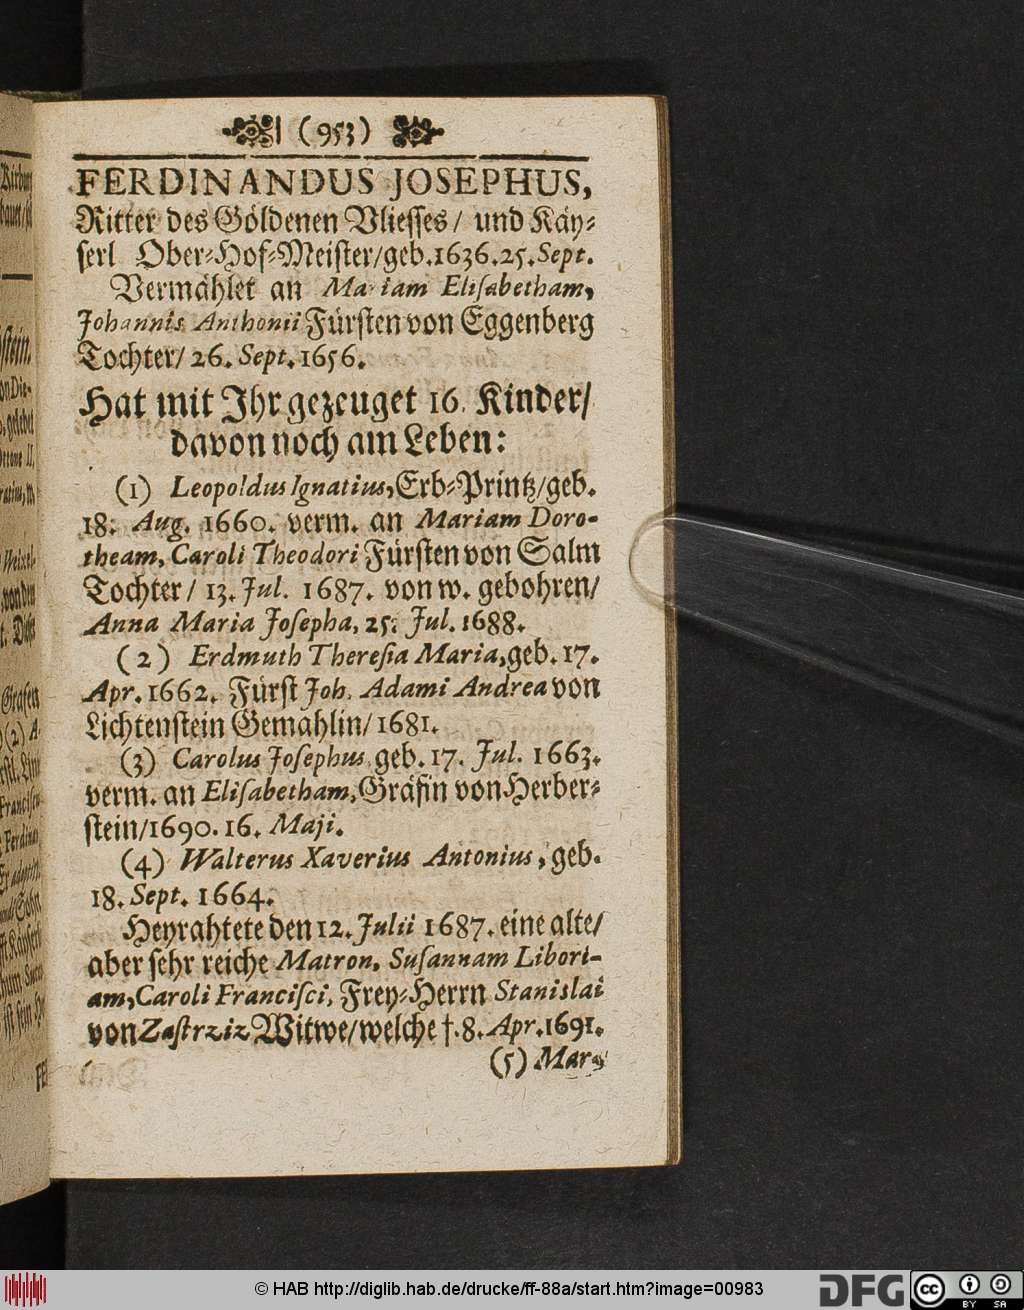 (953)
FERDINANDUS JOSEPHUS,
Ritter des Göldenen Vliesses / und Käy-
serl Ober-Hof-Meister/geb.1636.25.Sept.
Vermählet an Mariam Elisabetham,
Johannis Anthonii Fürsten von Eggenberg
Tochter/ 26. Sept. 1656.
Hat mit Ihr gezeuget 16. Kinder/
davon noch am Leben:
(1) Leopoldus Ignatius, Erb-Printz/geb.
18. Aug. 1660. verm. an Mariam Doro-
theam, Caroli Theodori Fürsten von Salm
Tochter / 13. Jul. 1687. von w. gebohren/
Anna Maria Josepha, 25. Jul. 1688.
(2) Erdmuth Theresia Maria, geb. 17.
Apr. 1662. Fürst Joh. Adami Andrea von
Lichtenstein Gemahlin/ 1681.
(3) Carolus Josephus geb. 17. Jul. 1663.
verm. an Elisabetham, Gräfin von Herber-
stein/1690. 16. Maji.
(4) Walterus Xaverius Antonius, geb.
18. Sept. 1664.
Heyrahtete den 12. Julii 1687. eine alte/
aber sehr reiche Matron, Susannam Libori-
am, Caroli Francisci, Frey-Herrn Stanislai
von Zastrziz Witwe/welche †. 8. Apr. 1691.
(5) Mar-
© HAB http://diglib.hab.de/drucke/ff-88a/start.htm?image=00983
DFG
cc
BY SA